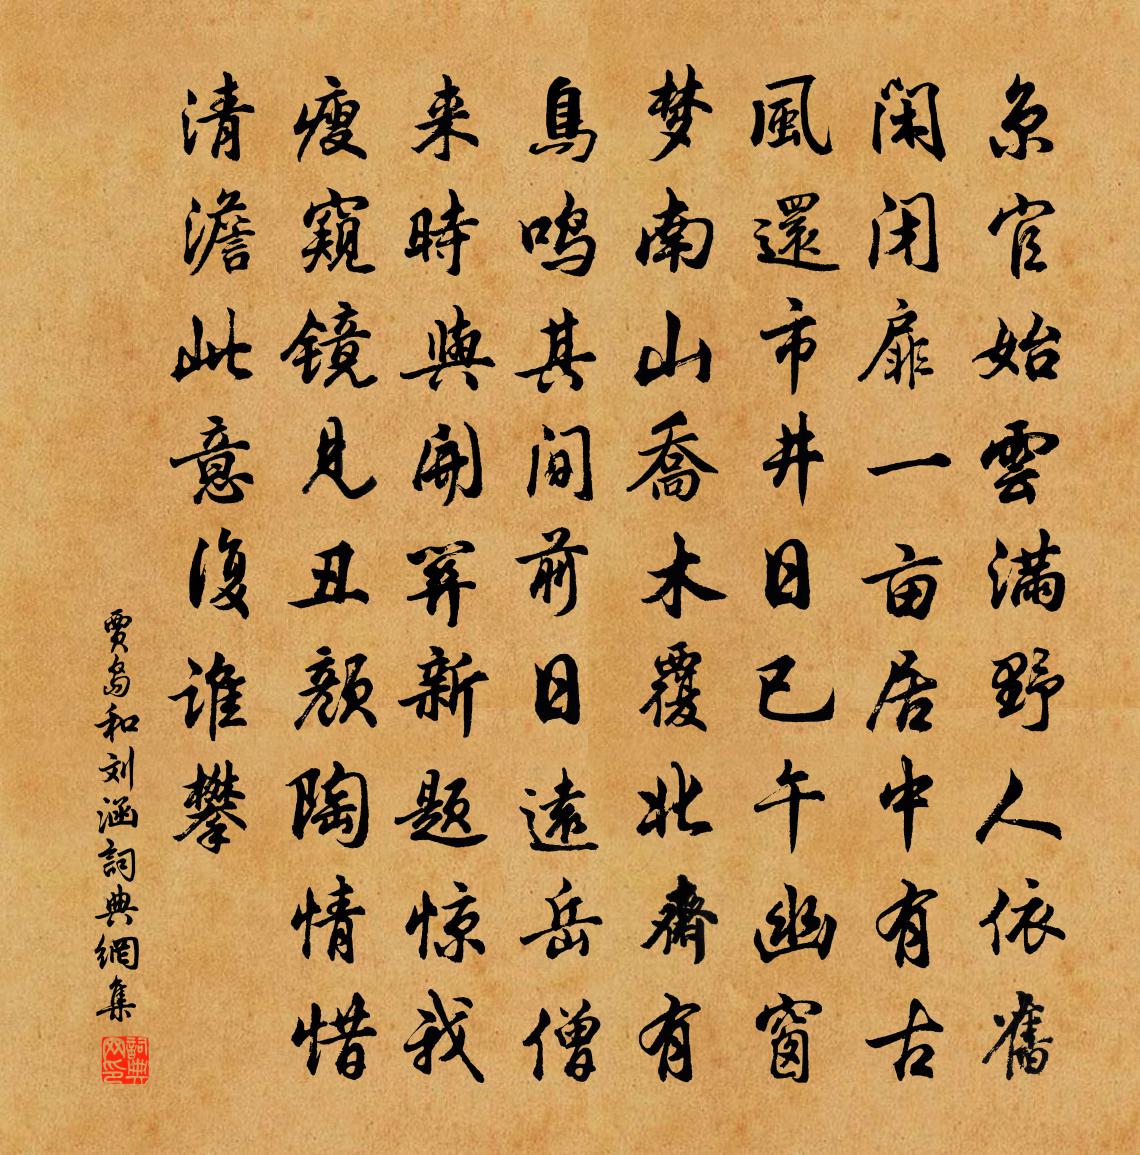 京官始雲満野人依舊
闲闭扉一亩居中有古
風還市井日已午幽窗
梦南山喬木覆北齋有
鳥鸣其间前日遠岳僧
来時與開關新题惊我
瘦窺镜見丑颜陶情惜
清澹此意復谁攀
贾岛和刘涵詞典網集
詞典网印